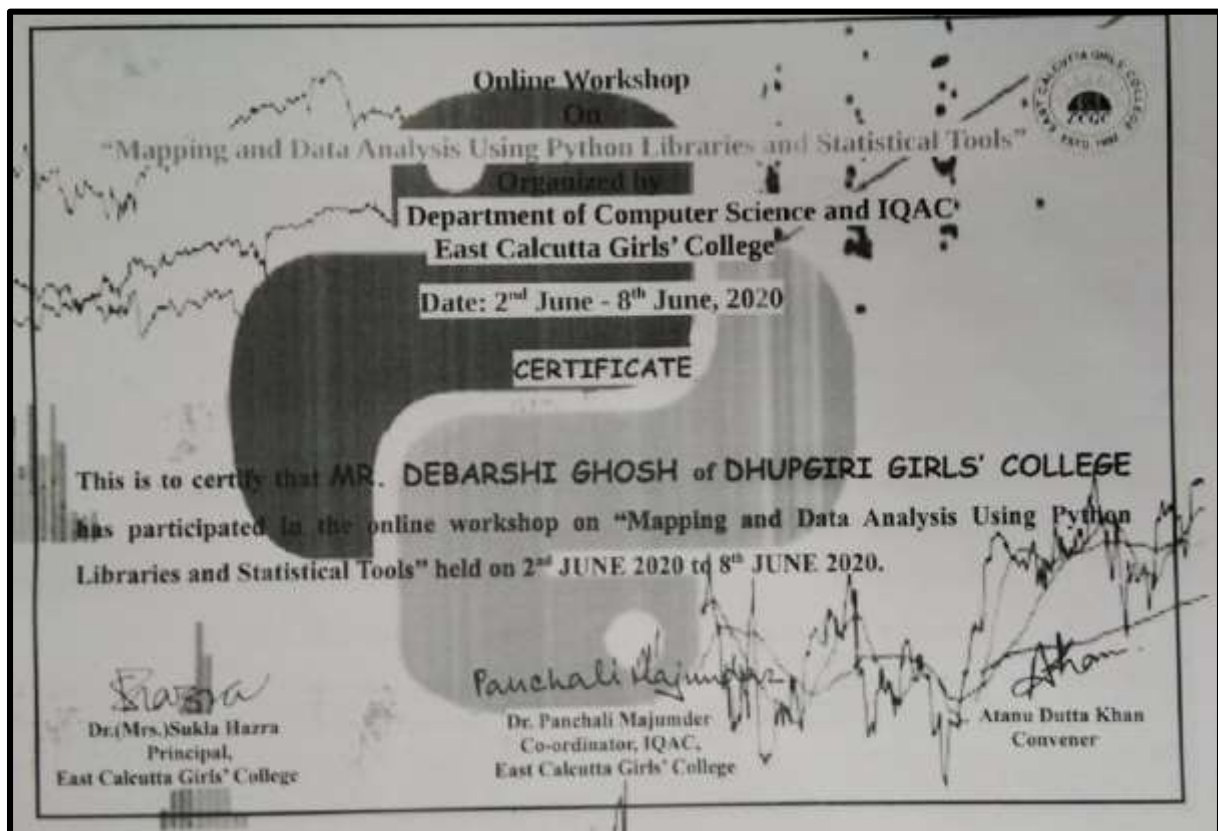 Online Workshop
On
"Mapping and Data Analysis Using Python Libraries and Statistical Tools"
Organized by
Department of Computer Science and IQAC
East Calcutta Girls' College
Date: 2nd June - 8th June, 2020
CERTIFICATE
This is to certify that MR. DEBARSHI GHOSH of DHUPGIRI GIRLS' COLLEGE
has participated in the online workshop on "Mapping and Data Analysis Using Python
Libraries and Statistical Tools" held on 2nd JUNE 2020 to 8th JUNE 2020.
Panchali Majumder
Dr.(Mrs.)Sukla Hazra
Principal,
East Calcutta Girls' College
Dr. Panchali Majumder
Co-ordinator, IQAC,
East Calcutta Girls' College
Atanu Dutta Khan
Convener
EAST CALCUTTA GIRLS' COLLEGE
ECGC